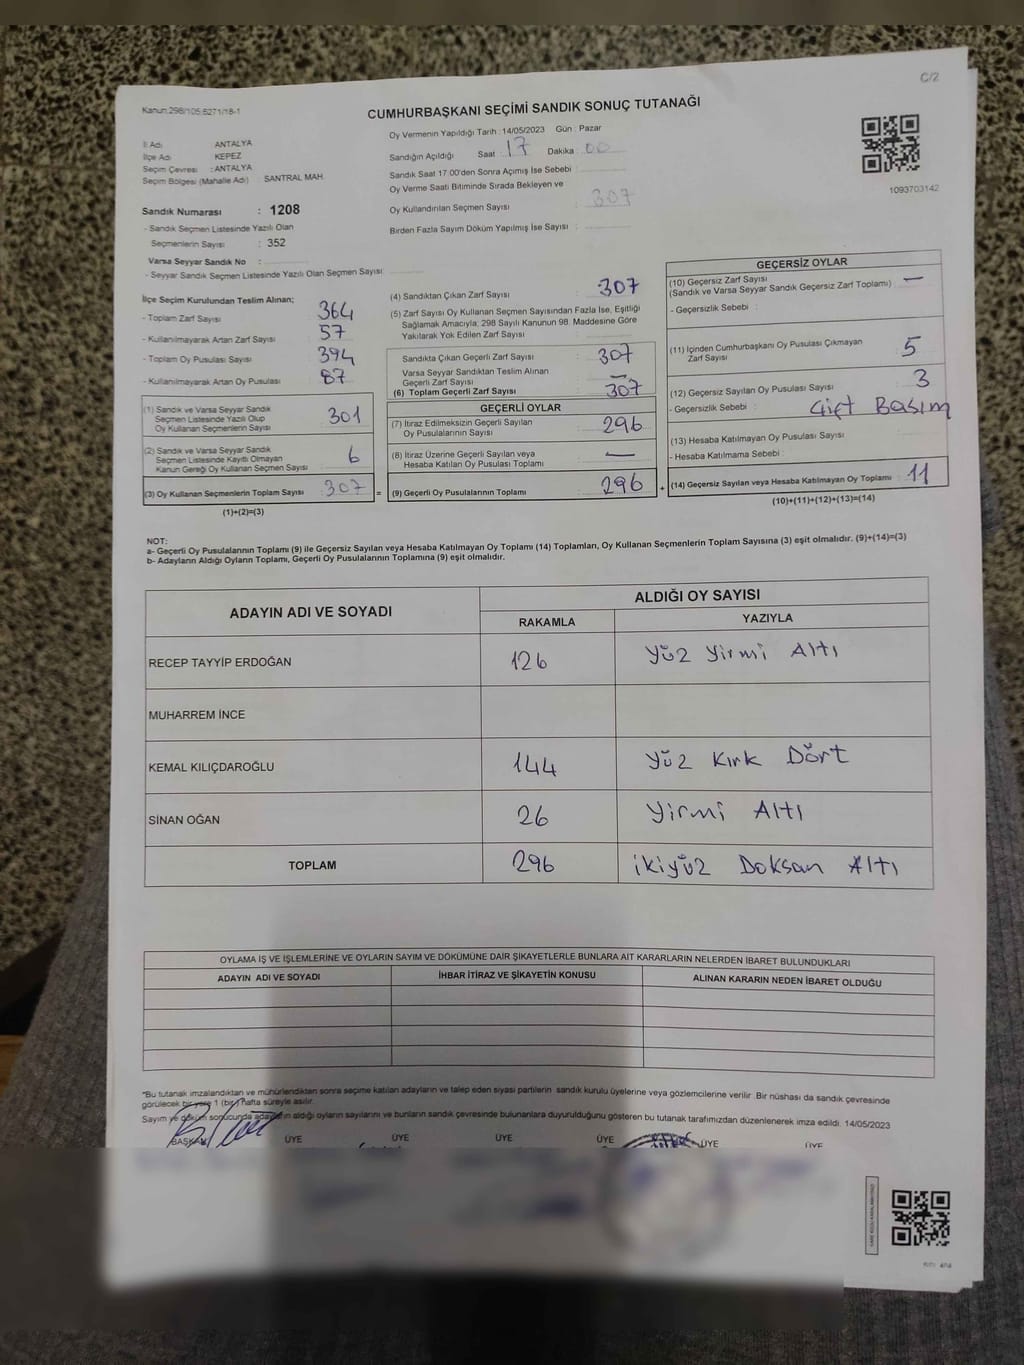 C/2
Kanun:298/105;6271/18-1
CUMHURBAŞKANI SEÇİMİ SANDIK SONUÇ TUTANAĞI
İl Adı ANTALYA
İlçe Adı KEPEZ
Seçim Çevresi : ANTALYA
Seçim Bölgesi (Mahalle Adı) SANTRAL MAH.
Sandık Numarası : 1208
- Sandık Seçmen Listesinde Yazılı Olan
Seçmenlerin Sayısı : 352
Varsa Seyyar Sandık No :
- Seyyar Sandık Seçmen Listesinde Yazılı Olan Seçmen Sayısı:
Oy Vermenin Yapıldığı Tarih : 14/05/2023 Gün : Pazar
Sandığın Açıldığı Saat : 17 Dakika : 00
Sandık Saat 17:00'den Sonra Açımış İse Sebebi :
Oy Verme Saati Bitiminde Sırada Bekleyen ve
Oy Kullandırılan Seçmen Sayısı : 307
Birden Fazla Sayım Döküm Yapılmış İse Sayısı :
1093703142
İlçe Seçim Kurulundan Teslim Alınan;
- Toplam Zarf Sayısı : 364
- Kullanılmayarak Artan Zarf Sayısı : 57
- Toplam Oy Pusulası Sayısı : 394
- Kullanılmayarak Artan Oy Pusulası : 87
(1) Sandık ve Varsa Seyyar Sandık
Seçmen Listesinde Yazılı Olup
Oy Kullanan Seçmenlerin Sayısı : 301
(2) Sandık ve Varsa Seyyar Sandık
Seçmen Listesinde Kayıtlı Olmayan
Kanun Gereği Oy Kullanan Seçmen Sayısı : 6
(3) Oy Kullanan Seçmenlerin Toplam Sayısı : 307
(1)+(2)=(3)
(4) Sandıktan Çıkan Zarf Sayısı : 307
(5) Zarf Sayısı Oy Kullanan Seçmen Sayısından Fazla İse, Eşitliği
Sağlamak Amacıyla; 298 Sayılı Kanunun 98. Maddesine Göre
Yakılarak Yok Edilen Zarf Sayısı :
Sandıkta Çıkan Geçerli Zarf Sayısı : 307
Varsa Seyyar Sandıktan Teslim Alınan
Geçerli Zarf Sayısı : —
(6) Toplam Geçerli Zarf Sayısı : 307
GEÇERLİ OYLAR
(7) İtiraz Edilmeksizin Geçerli Sayılan
Oy Pusulalarının Sayısı : 296
(8) İtiraz Üzerine Geçerli Sayılan veya
Hesaba Katılan Oy Pusulası Toplamı : —
= (9) Geçerli Oy Pusulalarının Toplamı : 296 +
GEÇERSİZ OYLAR
(10) Geçersiz Zarf Sayısı
(Sandık ve Varsa Seyyar Sandık Geçersiz Zarf Toplamı) : —
- Geçersizlik Sebebi :
(11) İçinden Cumhurbaşkanı Oy Pusulası Çıkmayan
Zarf Sayısı : 5
(12) Geçersiz Sayılan Oy Pusulası Sayısı : 3
- Geçersizlik Sebebi : Çift Basım
(13) Hesaba Katılmayan Oy Pusulası Sayısı :
- Hesaba Katılmama Sebebi :
(14) Geçersiz Sayılan veya Hesaba Katılmayan Oy Toplamı : 11
(10)+(11)+(12)+(13)=(14)
NOT:
a- Geçerli Oy Pusulalarının Toplamı (9) ile Geçersiz Sayılan veya Hesaba Katılmayan Oy Toplamı (14) Toplamları, Oy Kullanan Seçmenlerin Toplam Sayısına (3) eşit olmalıdır. (9)+(14)=(3)
b- Adayların Aldığı Oyların Toplamı, Geçerli Oy Pusulalarının Toplamına (9) eşit olmalıdır.
ADAYIN ADI VE SOYADI ALDIĞI OY SAYISI
RAKAMLA YAZIYLA
RECEP TAYYİP ERDOĞAN 126 Yüz Yirmi Altı
MUHARREM İNCE
KEMAL KILIÇDAROĞLU 144 Yüz Kırk Dört
SİNAN OĞAN 26 Yirmi Altı
TOPLAM 296 ikiyüz Doksan Altı
OYLAMA İŞ VE İŞLEMLERİNE VE OYLARIN SAYIM VE DÖKÜMÜNE DAİR ŞİKAYETLERLE BUNLARA AİT KARARLARIN NELERDEN İBARET BULUNDUKLARI
ADAYIN ADI VE SOYADI İHBAR İTİRAZ VE ŞİKAYETİN KONUSU ALINAN KARARIN NEDEN İBARET OLDUĞU
*Bu tutanak imzalandıktan ve mühürlendikten sonra seçime katılan adayların ve talep eden siyasi partilerin sandık kurulu üyelerine veya gözlemcilerine verilir. Bir nüshası da sandık çevresinde
görülecek bir yere 1 (bir) hafta süreyle asılır.
Sayım ve döküm sonucunda adayların aldığı oyların sayılarını ve bunların sandık çevresinde bulunanlara duyurulduğunu gösteren bu tutanak tarafımızdan düzenlenerek imza edildi. 14/05/2023
BAŞKAN ÜYE ÜYE ÜYE ÜYE ÜYE ÜYE